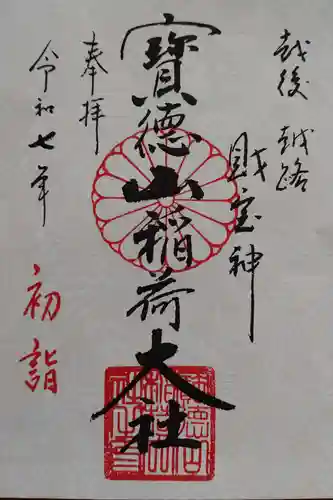 越後 越路
財宝神
寳德山稲荷大社
奉拝
令和七年
初詣